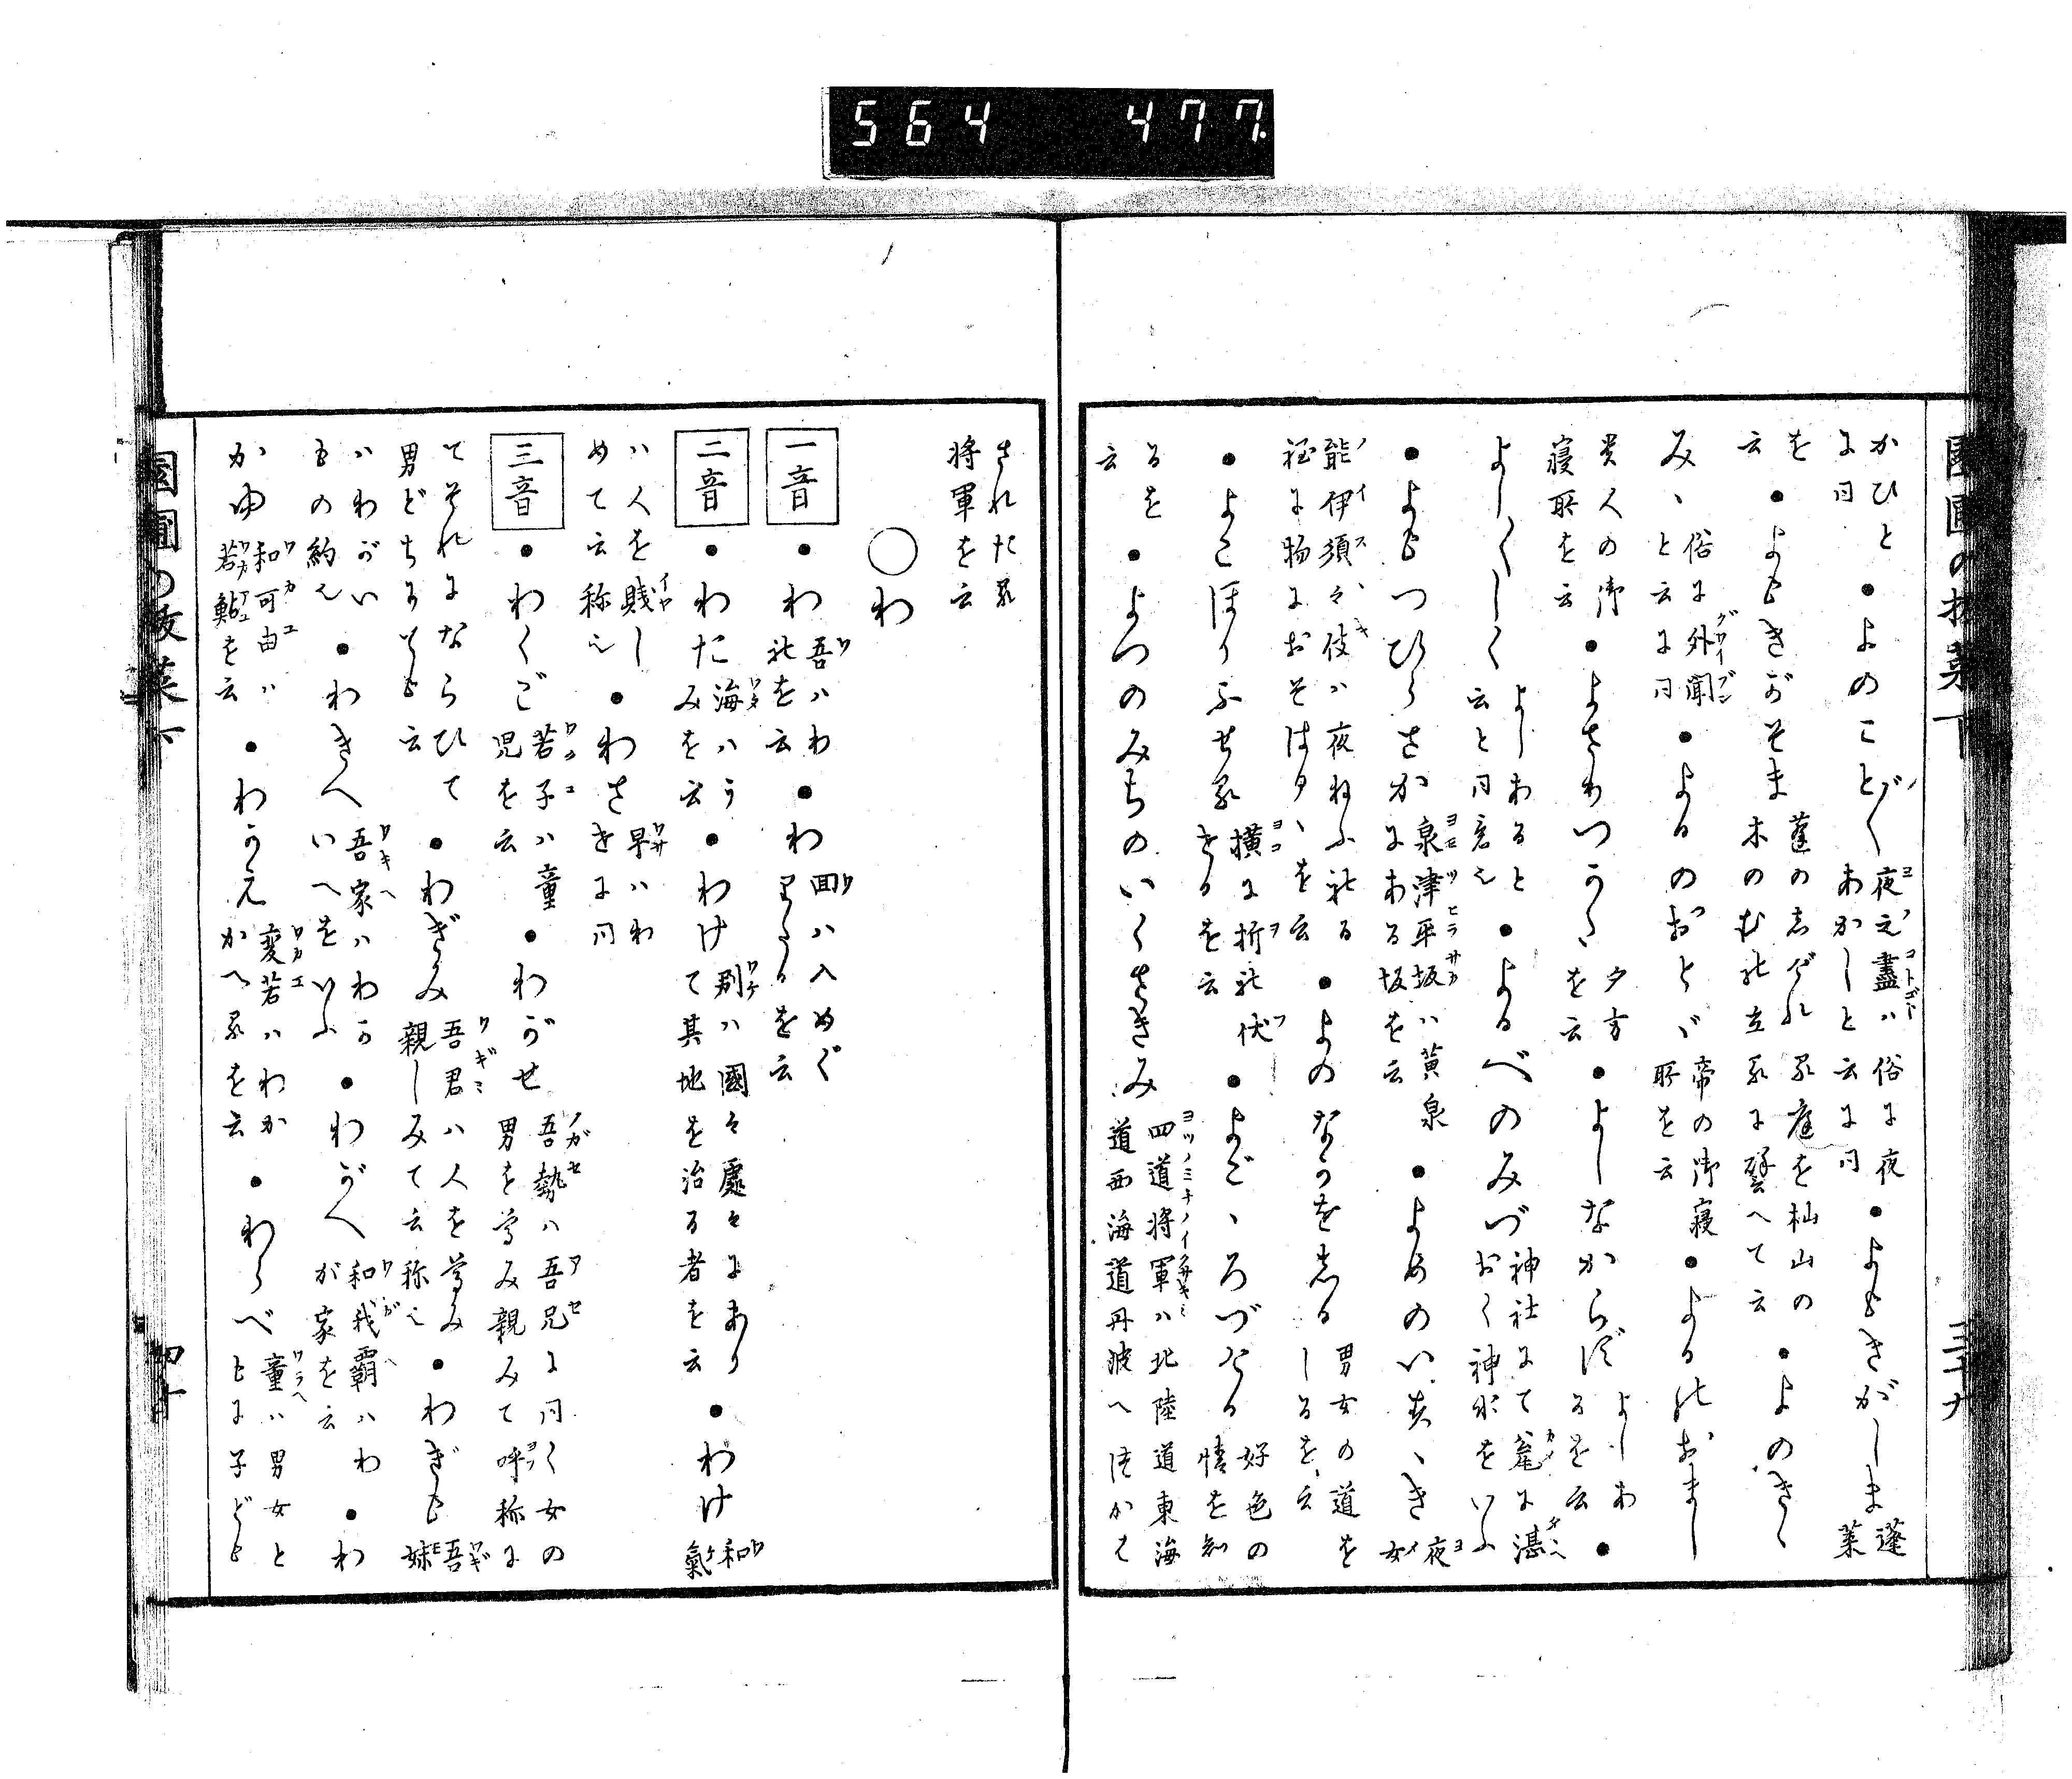 564 477
かひと ●よのことごく 夜之盡ハ俗に夜 ●よもぎがしま 蓬
に同 あかしと云に同 萊
を ●よもぎがそま 蓬の志げれる庭を杣山の ●よのきゝ
云 木のむれ立るに譬へて云
みゝ 俗に外聞 ●よるのおとゞ 帝の御寝 ●よるのおまし
と云に同 所を云
貴人の御 ●よさりつかた 夕方 ●よしなからず よしあ ●
寝所を云 を云 るを云
よし〳〵しく よしあると ●よるべのみづ 神社にて瓮に湛
云と同意也 おく神水をいふ
●よもつひらさか 泉津平坂ハ黄泉 ●よめのいすゝき 夜
にある坂を云 女
能伊須々伎ハ夜ねふれる ●よのなかを志る 男女の道を
程に物におそはるゝを云 しるを云
●よこほりふせる 横に折れ伏 ●よごゝろづける 好色の
せるを云 情を知
るを ●よつのみちのいくさきみ 四道将軍ハ北陸道東海
云 道西海道丹波へつかは
三十九
されたる
将軍を云
○わ
一音 ●わ 吾ハわ ●わ 回ハ入めぐ
れを云 りたるを云
二音 ●わた 海ハう ●わけ 別ハ國々處々にあり ●わけ 和
みを云 て其地を治る者を云 氣
ハ人を賤し ●わさ 早ハわ
めて云称也 さきに同
三音 ●わくご 若子ハ童 ●わがせ 吾勢ハ吾兄に同く女の
児を云 男を尊み親みて呼称に
てそれにならひて ●わぎみ 吾君ハ人を尊み ●わぎも 吾
男どちにも云 親しみて云称也 妹
ハわがい ●わきへ 吾家ハわが ●わがへ 和我覇ハわ ●わ
もの約也 いへをいふ が家を云
かゆ 和可由ハ ●わかえ 変若ハわか ●わらべ 童ハ男女と
若鮎を云 かへるを云 もに子ども
四十